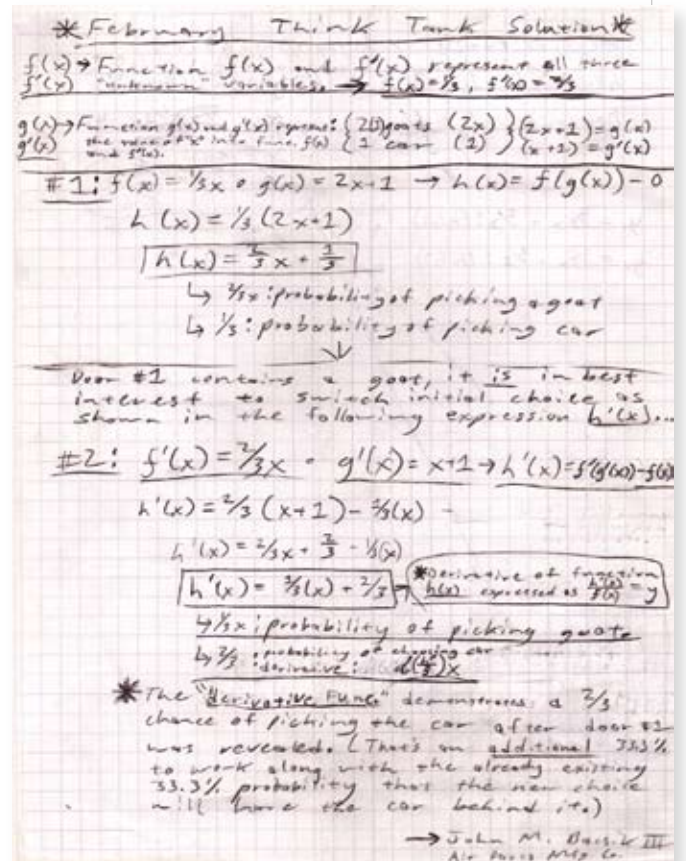 *February Think Tank Solution*
f(x) → Function f(x) and f'(x) represent all three
f'(x) "unknown" variables. → f(x) = 1/3, f'(x) = 2/3
g(x) → Function g(x) and g'(x) represent: { 2 goats (2x) } (2x+1) = g(x)
g'(x) the value of "x" into func. f(x) { 1 car (1) } (x+1) = g'(x)
and f'(x).
#1: f(x) = 1/3x ∘ g(x) = 2x+1 → h(x) = f(g(x)) - 0
h(x) = 1/3 (2x+1)
h(x) = 2/3 x + 1/3
↳ 2/3x: probability of picking a goat
↳ 1/3: probability of picking car
↓
Door #1 contains a goat, it is in best
interest to switch initial choice as
shown in the following expression h'(x)...
#2: f'(x) = 2/3x ∘ g'(x) = x+1 → h'(x) = f'(g'(x)) - f(x)
h'(x) = 2/3 (x+1) - 1/3(x)
h'(x) = 2/3x + 2/3 - 1/3(x)
h'(x) = 1/3(x) + 2/3 → *Derivative of function
h(x) expressed as = y
↳ 1/3x: probability of picking goat
↳ 2/3: probability of choosing car
derivative:
*The "derivative func." demonstrates a 2/3
chance of picking the car after door #1
was revealed. (That's an additional 33.3%
to work along with the already existing
33.3% probability that the new choice
will have the car behind it.)
→ John M. III
Air Mfg Co.